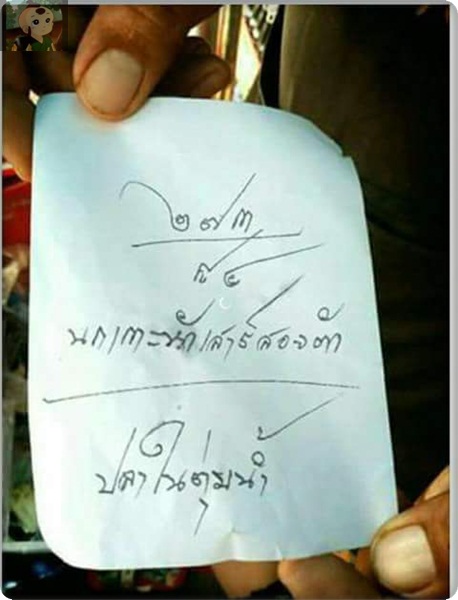 ๒๗๓
นกเกาะ เสาร์สองตัว
ปลาในตุ่มน้ำ